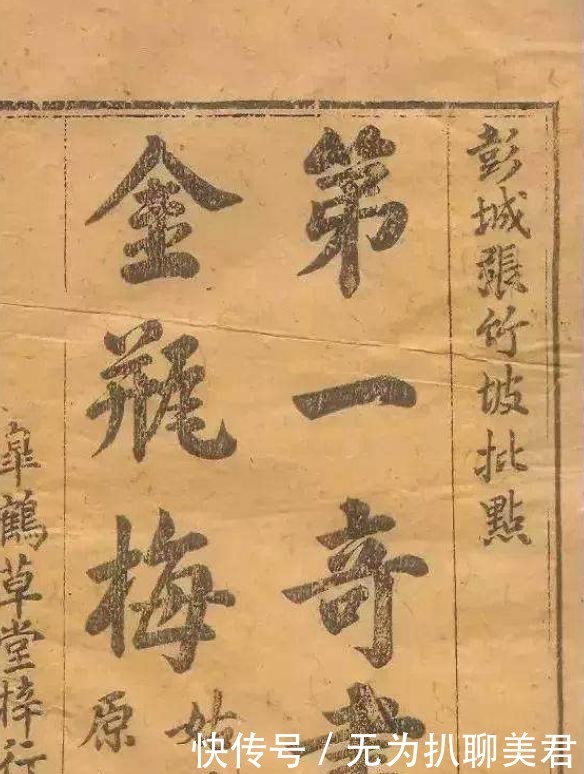 彭城張竹坡批點
第一奇書
金瓶梅
姑
原
皐鶴草堂梓行
快传号 / 无为扒聊美君